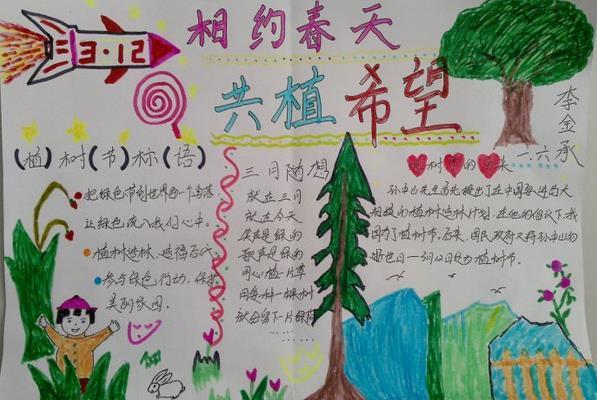 3·12
相约春天
共植希望
李金承
一.六
(植)树(节)标(语)
把绿色带到世界每一个角落
让绿色流入我们心中。
植树造林，造福后代
参与绿色行动，保护
美丽家园。
三月随想
就在三月
就在今天
笑声是绿的
歌声是绿的
用心植一片草
用爱种一棵树
就会留下一片绿荫
……
树的来
孙中山先生首先提出了在中国每进的大
规模的植树造林计划，在他的倡议下，我
国有了植树节。后来，国民政府又将孙中山的
逝世日—3月12日定为植树节。